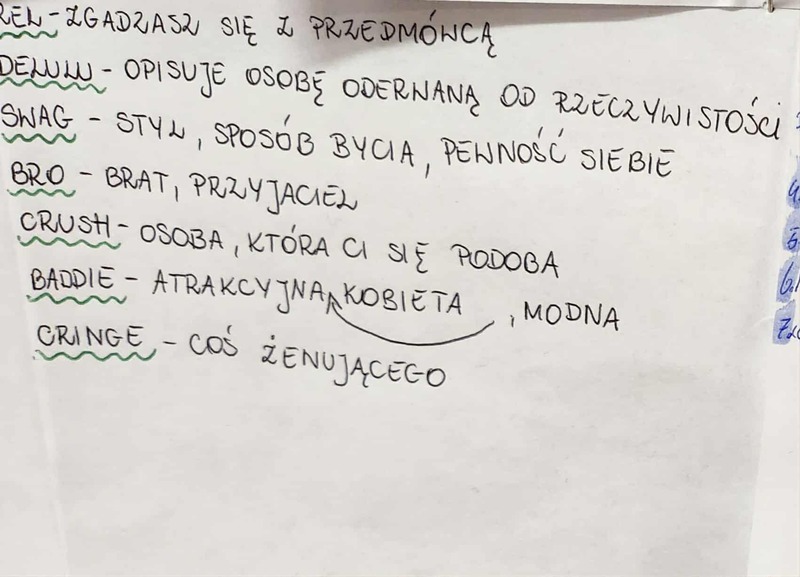 REL - ZGADZASZ SIĘ Z PRZEDMÓWCĄ
DELULU - OPISUJE OSOBĘ ODERWANĄ OD RZECZYWISTOŚCI
SWAG - STYL, SPOSÓB BYCIA, PEWNOŚĆ SIEBIE
BRO - BRAT, PRZYJACIEL
CRUSH - OSOBA, KTÓRA CI SIĘ PODOBA
BADDIE - ATRAKCYJNA KOBIETA , MODNA
CRINGE - COŚ ŻENUJĄCEGO